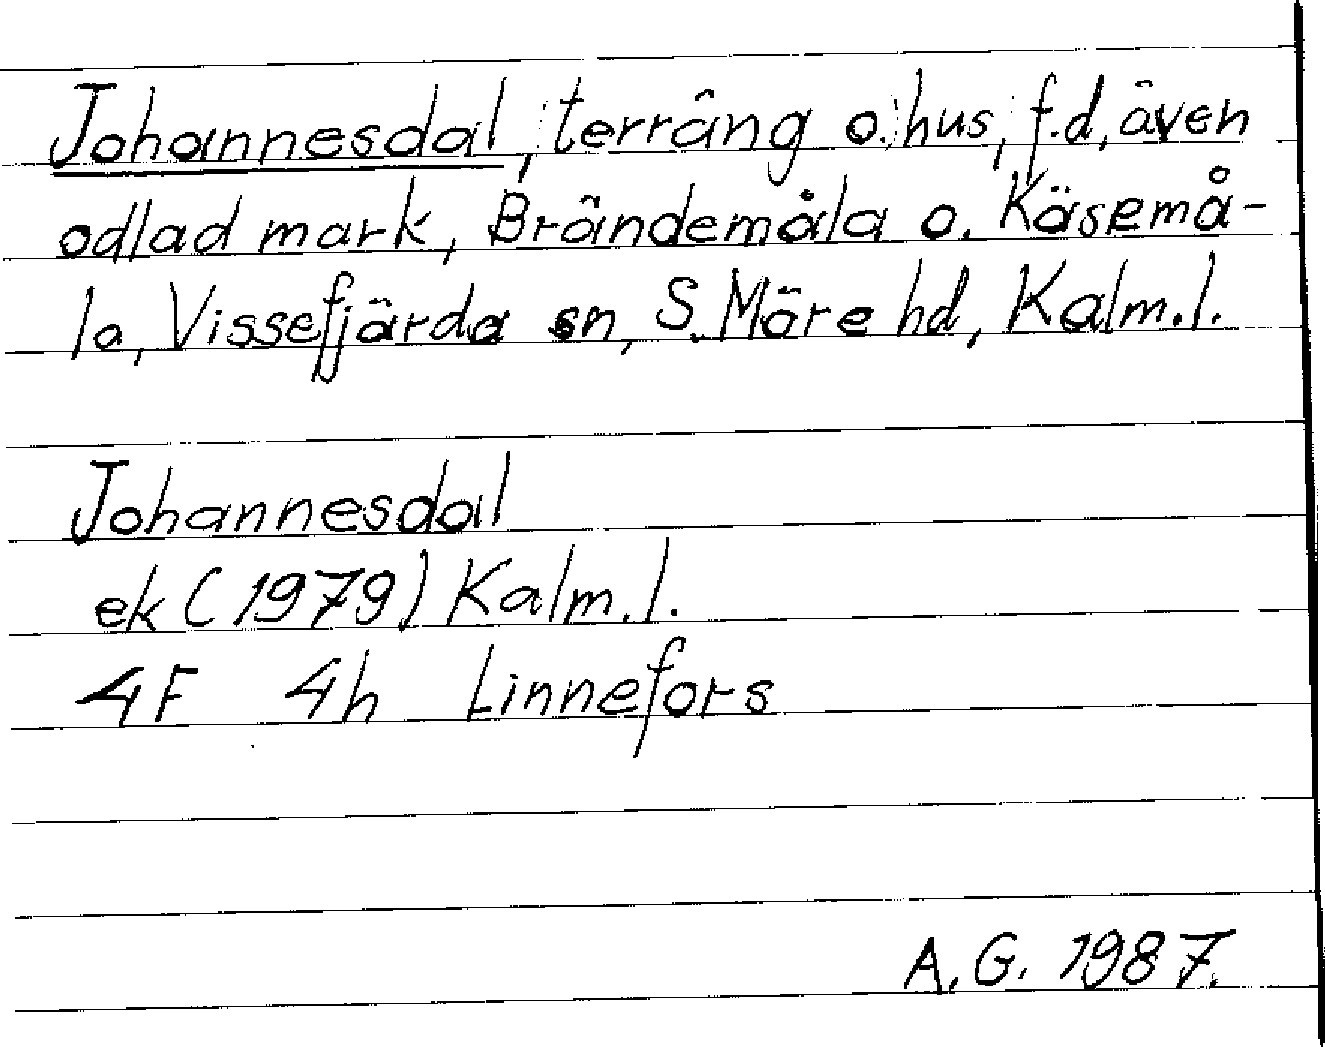 Johannesdal, terräng o. hus, f.d, även
odlad mark, Brändemåla o. Käsemå-
la, Vissefjärda sn, S. Möre hd, Kalm. l.
Johannesdal
ek (1979) Kalm. l.
4F 4h Linnefors
A. G. 1987.